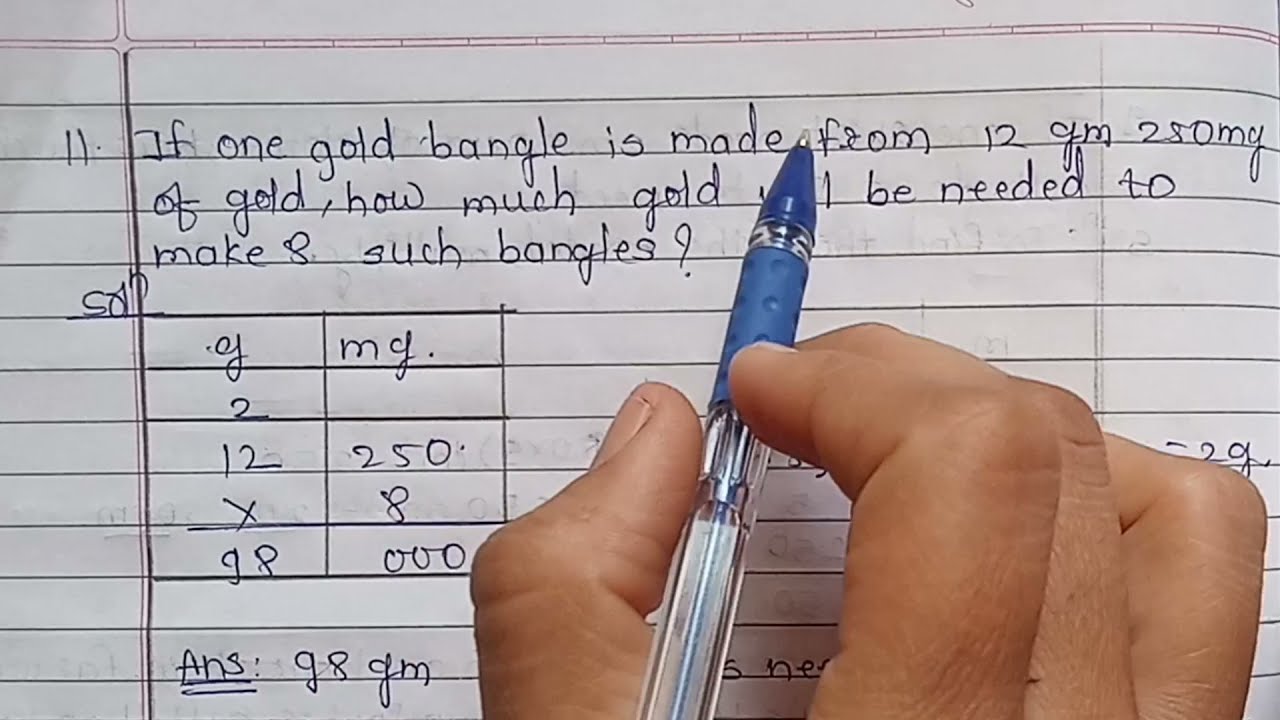 11. If one gold bangle is made from 12 gm 250mg
of gold, how much gold be needed to
make 8 such bangles?
Solⁿ
g mg.
2
12 250.
x 8
98 000
= 2g.
Ans: 98 gm